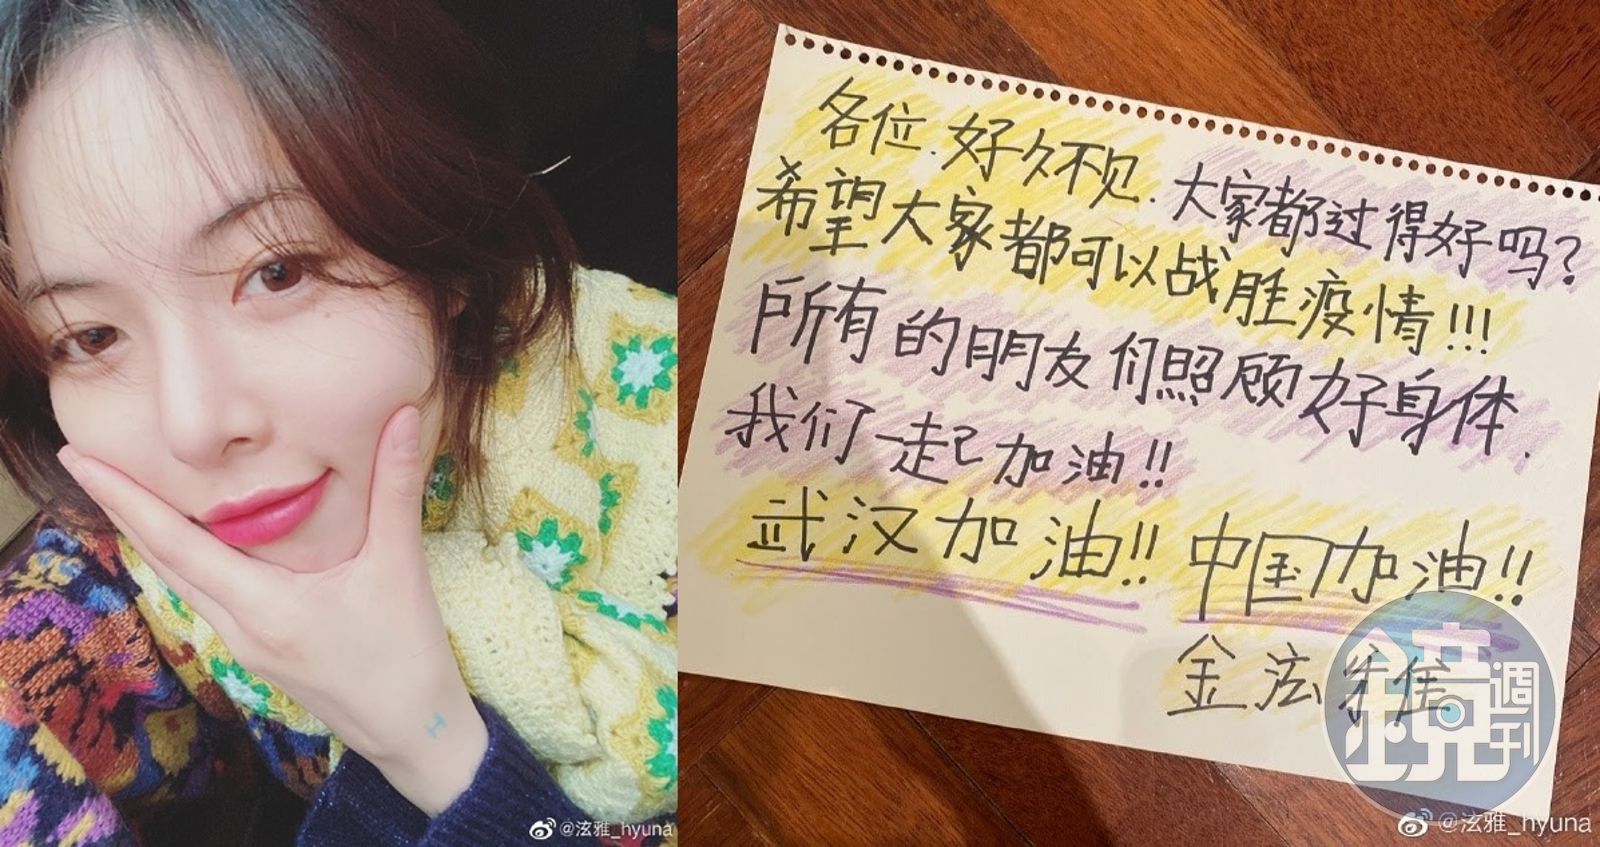 各位.好久不见.大家都过得好吗?
希望大家都可以战胜疫情!!!
所有的朋友们照顾好身体.
我们一起加油!!
武汉加油!! 中国加油!!
金泫雅
鏡週刊
@泫雅_hyuna
@泫雅_hyuna